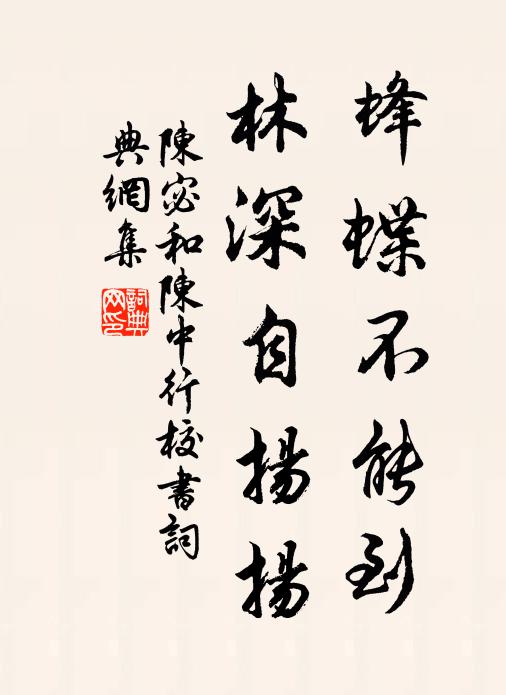 蜂蝶不能到
林深自揚揚
陳宓和陳中行校書詞
典網集
詞典
网印